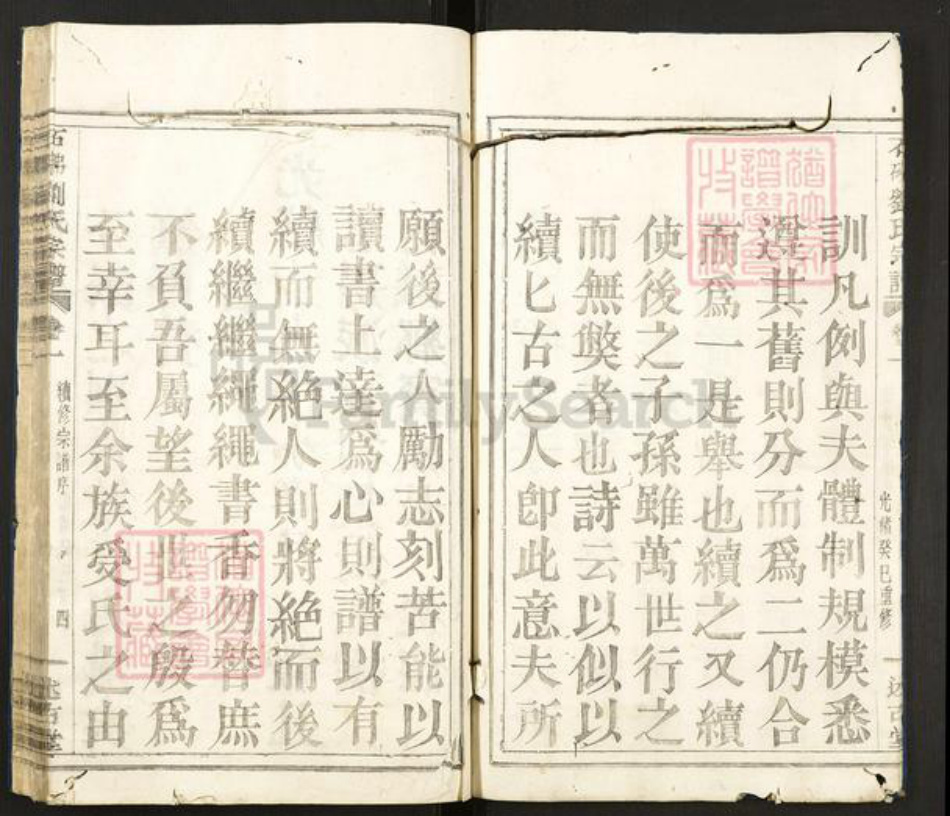 訓凡例與夫體制規模悉
遵其舊則分而爲二仍合
而爲一是舉也續之又續
使後之子孫雖萬世行之
而無獘者也詩云以似以
續匕古之人卽此意夫所
光緒癸巳重修
願後之人勵志刻苦能以
讀書上達爲心則譜以有
續而無絶人則將絶而後
續繼繼繩繩書香勿替庶
不負吾屬望後世之殷爲
至幸耳至余族受氏之由
劉氏宗譜
卷一
續修宗譜序
四
述古堂
FamilySearch